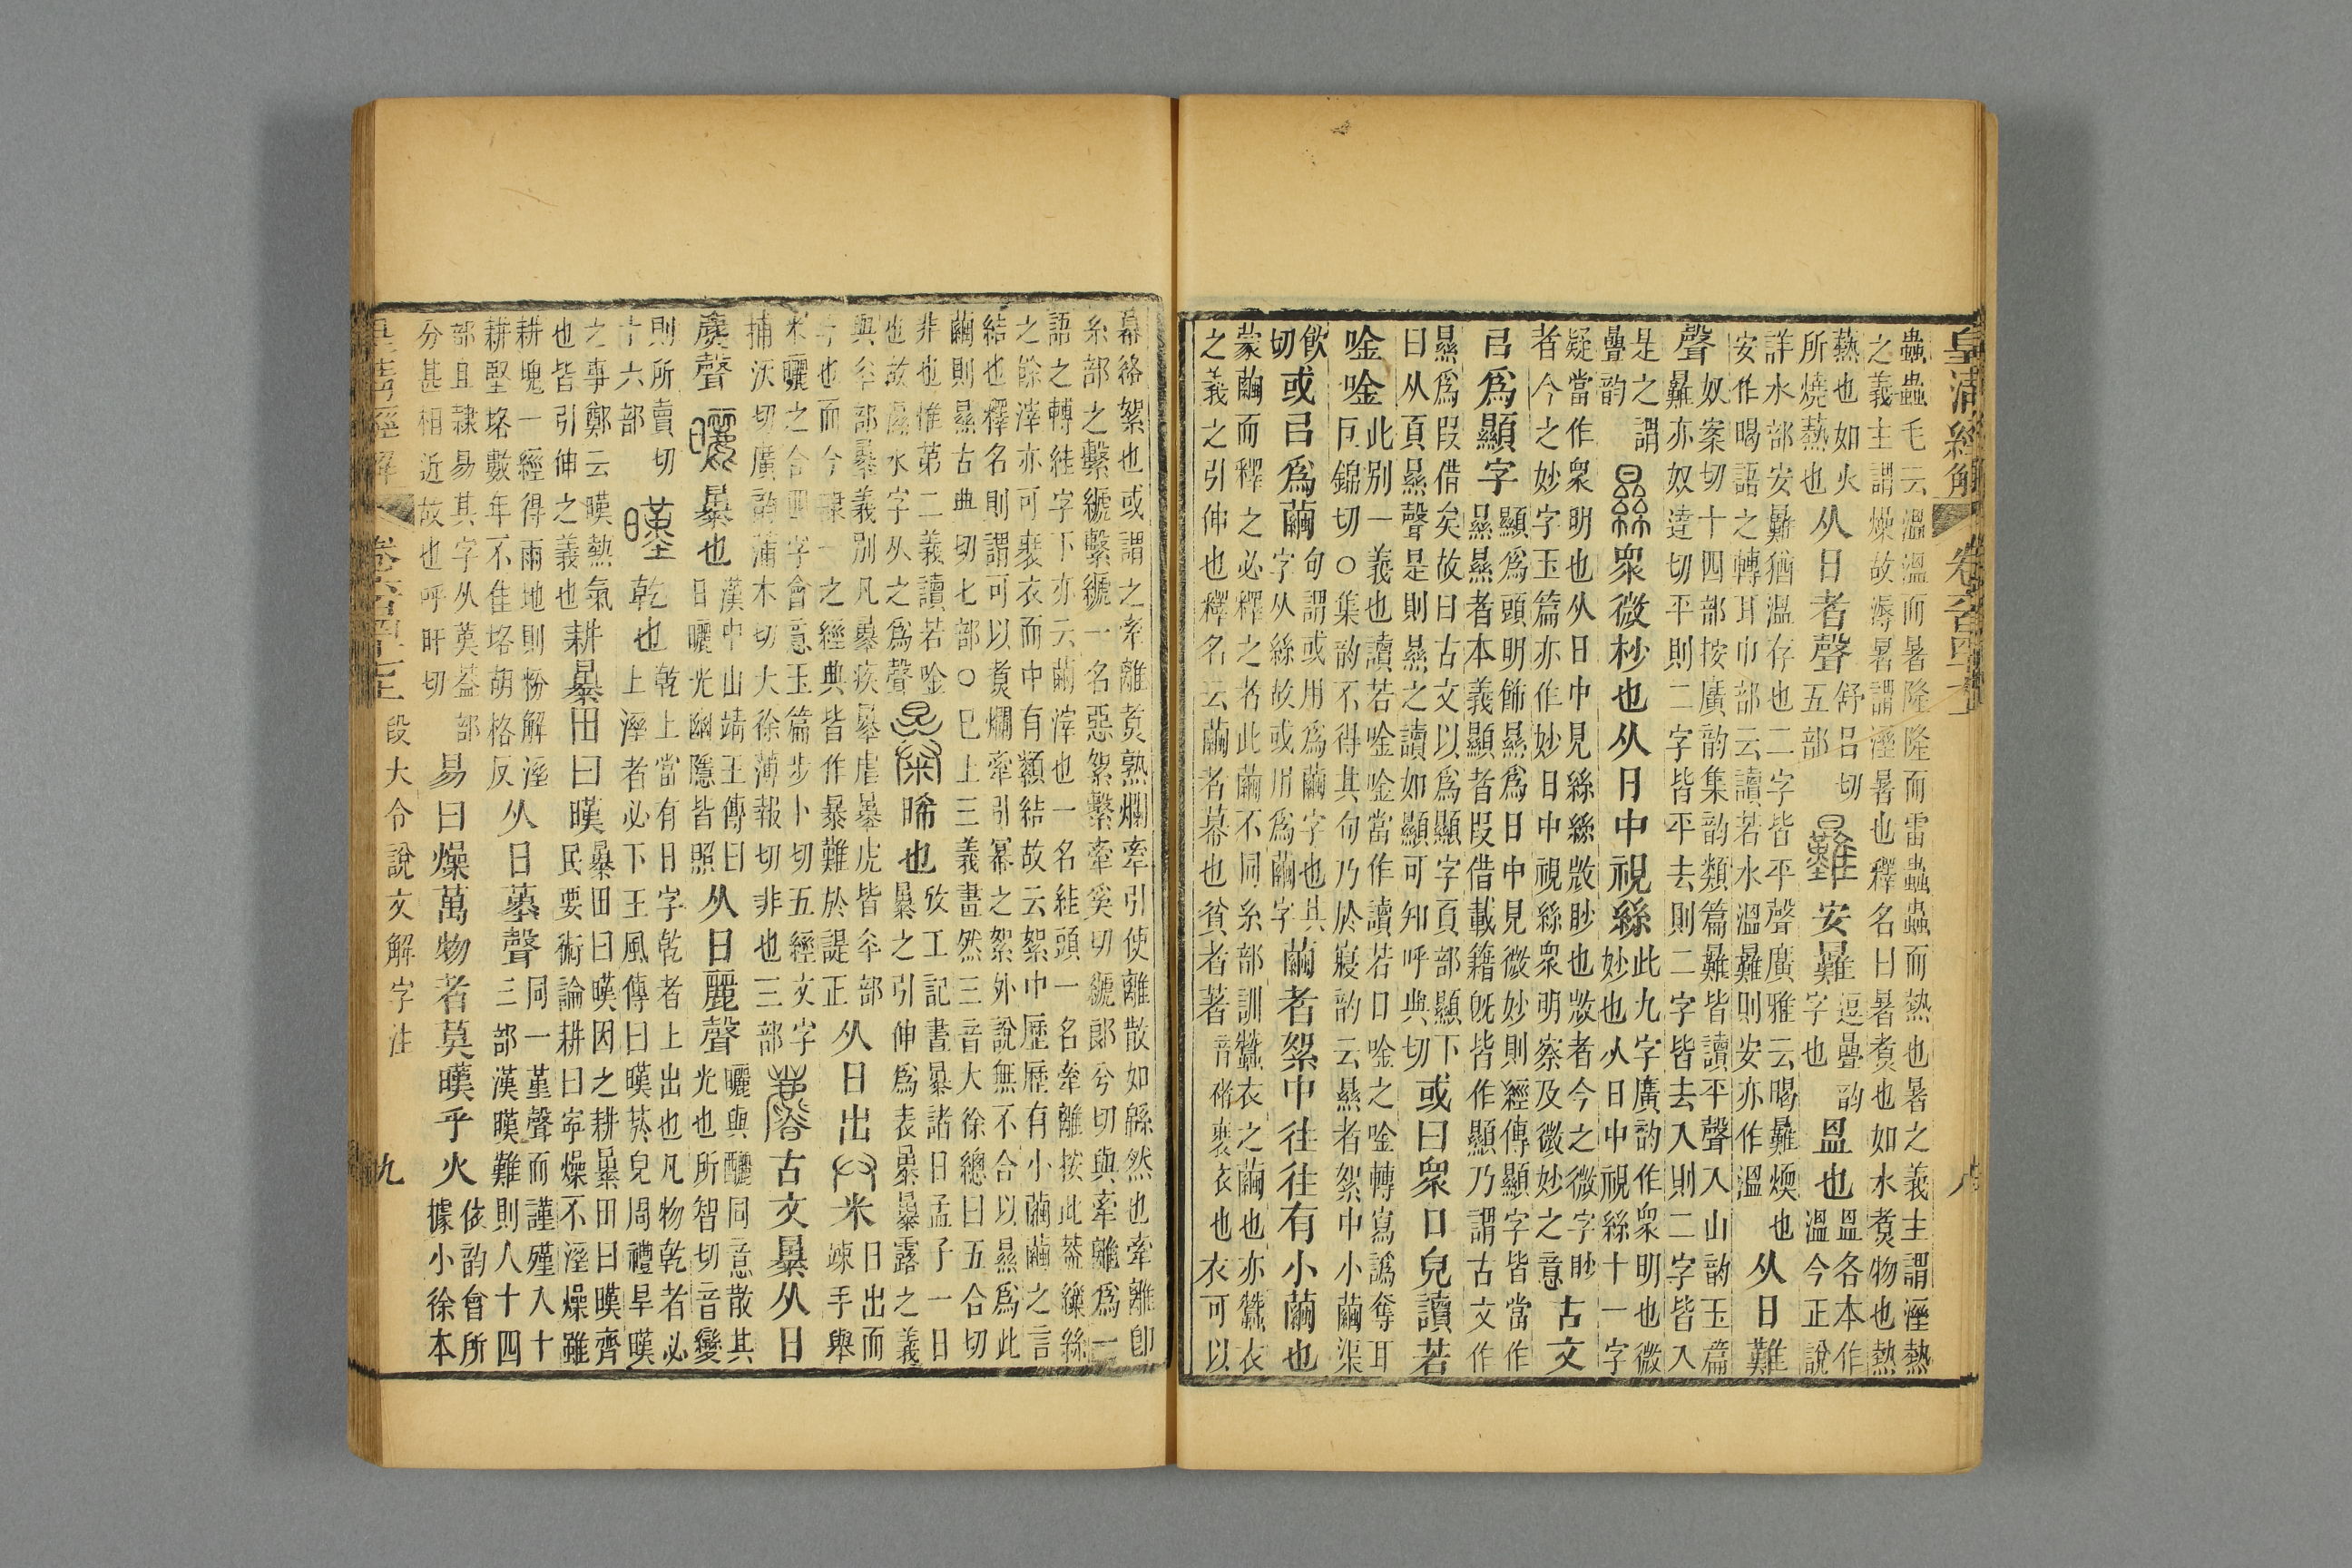 皇清經解 卷六百四十七上 八
蟲蟲毛云溫溫而暑隆隆而雷蟲蟲而熱也暑之義主謂溼熱
之義主謂燥故溽暑謂溼暑也釋名曰暑煑也如水煑物也熱
熱也如火所燒熱也从日者聲舒呂切五部安㬮逗疊韵字也㬈也㬈各本作溫今正說
詳水部安㬮猶溫存也二字皆平聲廣雅云㬮煗也
安作㬈語之轉耳巾部云讀若水溫㬮則安亦作溫从日難
聲奴案切十四部按廣韵集韵類篇㬮皆讀平聲入山韵玉篇
㬮亦奴達切平則二字皆平去則二字皆去入則二字皆入
是之謂疊韵衆微杪也从日中視絲此九字廣韵作衆明也微妙也从日中視絲十一字
疑當作衆明也从日中見絲絲㪚眇也㪚者今之微字眇
者今之妙字玉篇亦作妙日中視絲衆明察及微妙之意古文
㠯爲顯字顯爲頭明飾㬎爲日中見微妙則經傳顯字皆當作
㬎㬎者本義顯者叚借載籍旣皆作顯乃謂古文作
㬎爲叚借矣故曰古文以爲顯字頁部顯下
曰从頁㬎聲是則㬎之讀如顯可知呼典切或曰衆口皃讀若
唫唫此别一義也讀若唫唫當作讀若口唫之唫轉寫譌奪耳
巨錦切○集韵不得其句乃於寢韵云㬎者絮中小繭渠
飲切或㠯爲繭句謂或用爲繭字也其字从絲故或用爲繭字繭者絮中往往有小繭也
蒙繭而釋之必釋之者此繭不同糸部訓蠶衣之繭也亦蠶衣
之義之引伸也釋名云繭者幕也貧者著音褚裹衣也衣可以
幕絡絮也或謂之牽離煑熟爛牽引使離散如緜然也牽離卽
糸部之繫䋠繫䋠一名惡絮繫牽奚切䋠郞兮切與牽離爲一
語之轉絓字下亦云繭滓也一名絓頭一名牽離按此葢繅絲
之餘滓亦可裹衣而中有纇結故云絮中歷歷有小繭繭之言
結也釋名則謂可以煑爛牽引冪之絮外說無不合以㬎爲此
繭則㬎古典切七部○已上三義畫然三音大徐總曰五合切
非也惟第二義讀若唫
也故濕水字从之爲聲晞也攷工記晝暴諸日孟子一日
暴之引伸爲表暴暴露之義
與㚔部暴義別凡暴疾暴虐暴虎皆㚔部
今也而今隸一之經典皆作暴難於諟正从日出𠬞米日出而竦手舉
米曬之合四字會意玉篇步卜切五經文字
捕沃切廣韵蒲木切大徐薄報切非也三部古文暴从日
麃聲暴也漢中山靖王傳曰
日曬光幽隱皆照从日麗聲曬與釃同意散其光也所智切音變
則所賣切十六部乾也乾上當有日字乾者上出也凡物乾者必
上溼者必下王風傳曰暵菸皃周禮旱暵
之事鄭云暵熱氣
也皆引伸之義也耕暴田曰暵暴田曰暵因之耕暴田曰暵齊
民要術論耕曰寧燥不溼燥雖
耕塊一經得雨地則粉解溼
耕堅垎數年不佳垎胡格反从日堇聲同一堇聲而謹殣入十
三部漢暵難則入十四
部且隸易其字从莫葢部
分甚相近故也呼旰切易曰燥萬物者莫暵乎火依韵會所據小徐本
皇清經解 卷六百四十七上 段大令說文解字注 九